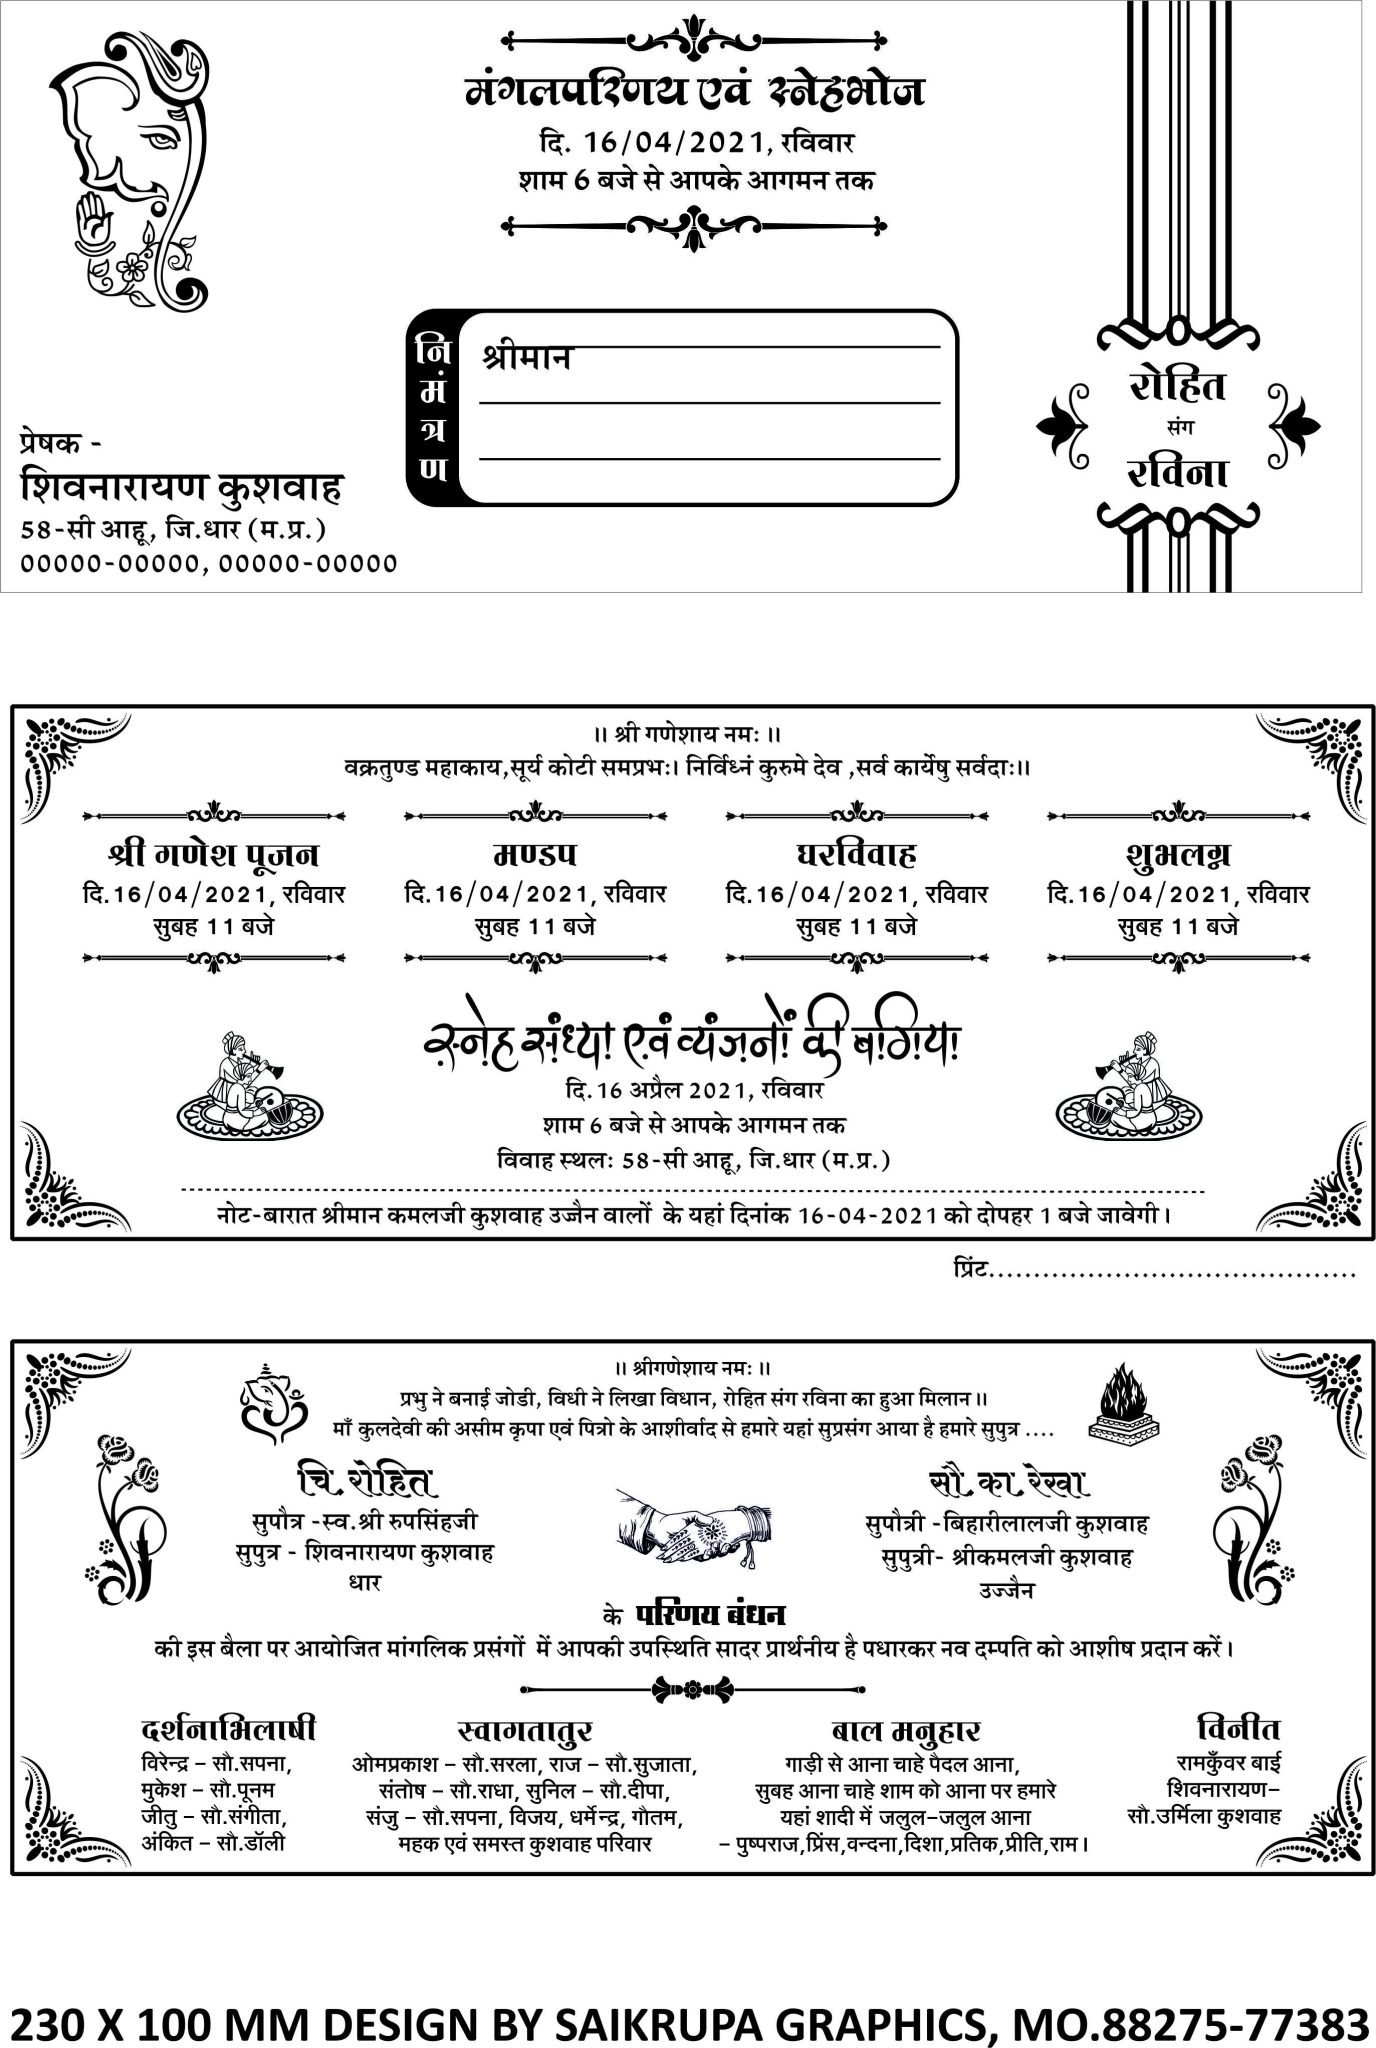 मंगलपरिणय एवं स्नेहभोज
दि. 16/04/2021, रविवार
शाम 6 बजे से आपके आगमन तक
निमंत्रण
श्रीमान
रोहित
संग
रविना
प्रेषक -
शिवनारायण कुशवाह
58-सी आहू, जि.धार (म.प्र.)
00000-00000, 00000-00000
॥ श्री गणेशाय नमः ॥
वक्रतुण्ड महाकाय,सूर्य कोटी समप्रभः। निर्विध्नं कुरुमे देव ,सर्व कार्येषु सर्वदाः॥
श्री गणेश पूजन
दि.16/04/2021, रविवार
सुबह 11 बजे
मण्डप
दि.16/04/2021, रविवार
सुबह 11 बजे
घरविवाह
दि.16/04/2021, रविवार
सुबह 11 बजे
शुभलग्न
दि.16/04/2021, रविवार
सुबह 11 बजे
स्नेह संध्या एवं व्यंजनों की बगिया
दि.16 अप्रैल 2021, रविवार
शाम 6 बजे से आपके आगमन तक
विवाह स्थलः 58-सी आहू, जि.धार (म.प्र.)
नोट-बारात श्रीमान कमलजी कुशवाह उज्जैन वालों के यहां दिनांक 16-04-2021 को दोपहर 1 बजे जावेगी।
प्रिंट.........................................
॥ श्रीगणेशाय नमः ॥
प्रभु ने बनाई जोडी, विधी ने लिखा विधान, रोहित संग रविना का हुआ मिलान॥
माँ कुलदेवी की असीम कृपा एवं पित्रो के आशीर्वाद से हमारे यहां सुप्रसंग आया है हमारे सुपुत्र ....
चि.रोहित
सुपौत्र -स्व.श्री रुपसिंहजी
सुपुत्र - शिवनारायण कुशवाह
धार
सौ.का.रेखा
सुपौत्री -बिहारीलालजी कुशवाह
सुपुत्री- श्रीकमलजी कुशवाह
उज्जैन
के परिणय बंधन
की इस बैला पर आयोजित मांगलिक प्रसंगों में आपकी उपस्थिति सादर प्रार्थनीय है पधारकर नव दम्पति को आशीष प्रदान करें।
दर्शनाभिलाषी
विरेन्द्र – सौ.सपना,
मुकेश – सौ.पूनम
जीतु – सौ.संगीता,
अंकित – सौ.डॉली
स्वागतातुर
ओमप्रकाश – सौ.सरला, राज – सौ.सुजाता,
संतोष – सौ.राधा, सुनिल – सौ.दीपा,
संजु – सौ.सपना, विजय, धर्मेन्द्र, गौतम,
महक एवं समस्त कुशवाह परिवार
बाल मनुहार
गाड़ी से आना चाहे पैदल आना,
सुबह आना चाहे शाम को आना पर हमारे
यहां शादी में जलुल–जलुल आना
– पुष्पराज,प्रिंस,वन्दना,दिशा,प्रतिक,प्रीति,राम।
विनीत
रामकुँवर बाई
शिवनारायण–
सौ.उर्मिला कुशवाह
230 X 100 MM DESIGN BY SAIKRUPA GRAPHICS, MO.88275-77383